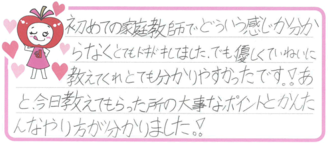 初めての家庭教師でどういう感じか分か
らなくとてもドキドキしました。でも優しくていねいに
教えてくれとても分かりやすかったです!!あ
と、今日教えてもらった所の大事なポイントとかんた
んなやり方が分かりました!!